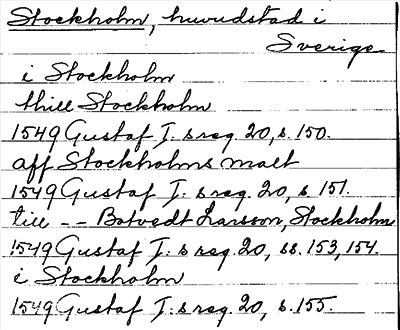 Stockholm, huvudstad i
Sverige
i Stockholm
thill Stockholm
1549 Gustaf I:s reg. 20, s. 150.
aff Stockholms malt
1549 Gustaf I:s reg. 20, s. 151.
till -- Botvedt Larsson, Stockholm
1549 Gustaf I:s reg. 20, ss. 153, 154.
i Stockholm
1549 Gustaf I:s reg. 20, s. 155.